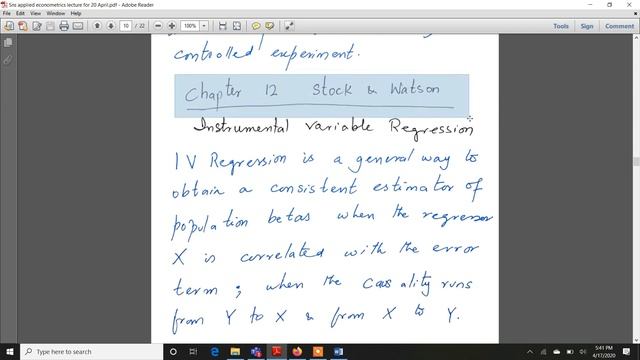 Sns applied econometrics lecture for 20 April.pdf - Adobe Reader
File Edit View Window Help
10 / 22 100% Tools Sign Comment
controlled experiment.
Chapter 12 Stock & Watson
Instrumental Variable Regression
IV Regression is a general way to
obtain a consistent estimator of
population betas when the regressor
X is correlated with the error
term ; when the causality runs
from Y to X & from X to Y.
Type here to search
5:41 PM
4/17/2020